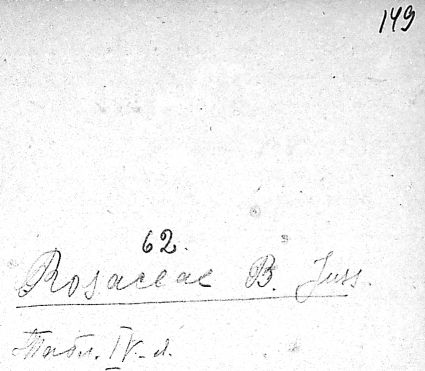 149
62.
Rosaceae B. Juss.
Табл. IV-я.